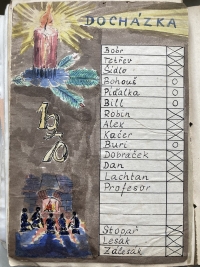 DOCHÁZKA
Bobr
Tetřev
Šídlo
Bohouš
Píďalka
Bill
Robin
Alex
Kačer
Buri
Dobráček
Dan
Lachtan
Profesor
1970
Stopař
Lesák
Zálesák